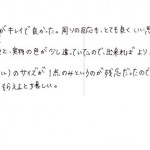 がキレイで良かった。周りの反応も、とても良く いい思
と、実物の色が少し違っていたので、出来れば より
い）のサイズが 1点のみというのが残念だったので
もらえると嬉しい。